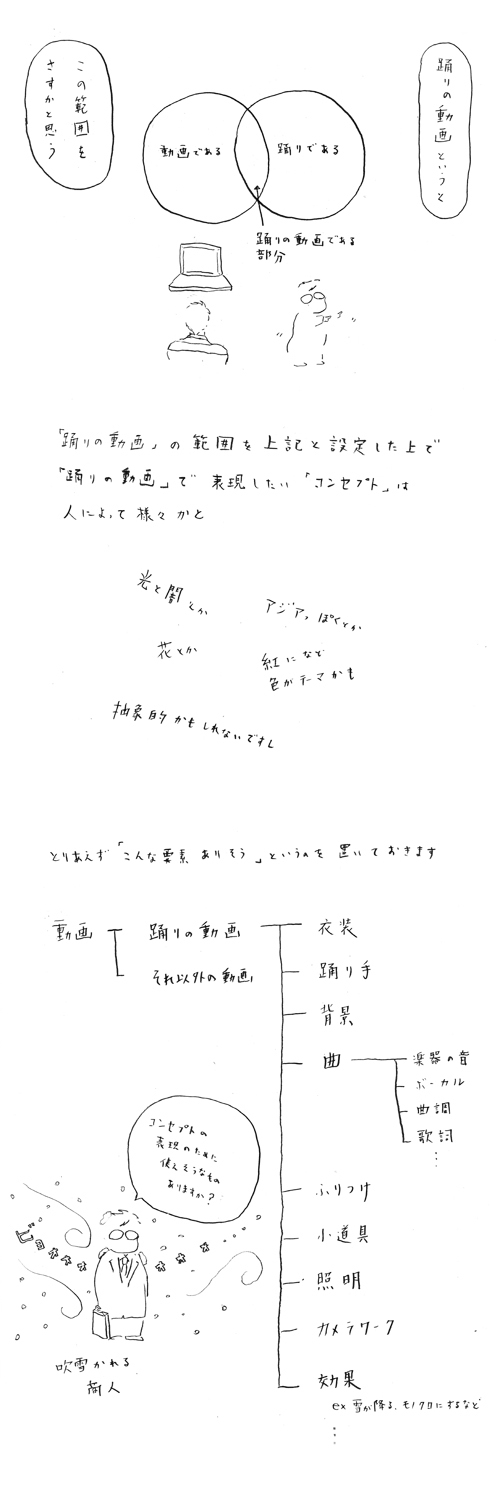 踊りの動画というと
この範囲を
さすかと思う
動画である
踊りである
踊りの動画である
部分
「踊りの動画」の範囲を上記と設定した上で
「踊りの動画」で表現したい「コンセプト」は
人によって様々かと
光と闇とか
アジアっぽくとか
花とか
紅になど
色がテーマかも
抽象的かもしれないですし
とりあえず「こんな要素ありそう」というのを置いておきます
動画
踊りの動画
それ以外の動画
衣装
踊り手
背景
曲
楽器の音
ボーカル
曲調
歌詞
⋮
ふりつけ
小道具
照明
カメラワーク
効果
ex 雪が降る、モノクロにするなど
⋮
コンセプトの
表現のために
使えそうなもの
ありますか?
吹雪かれる
商人